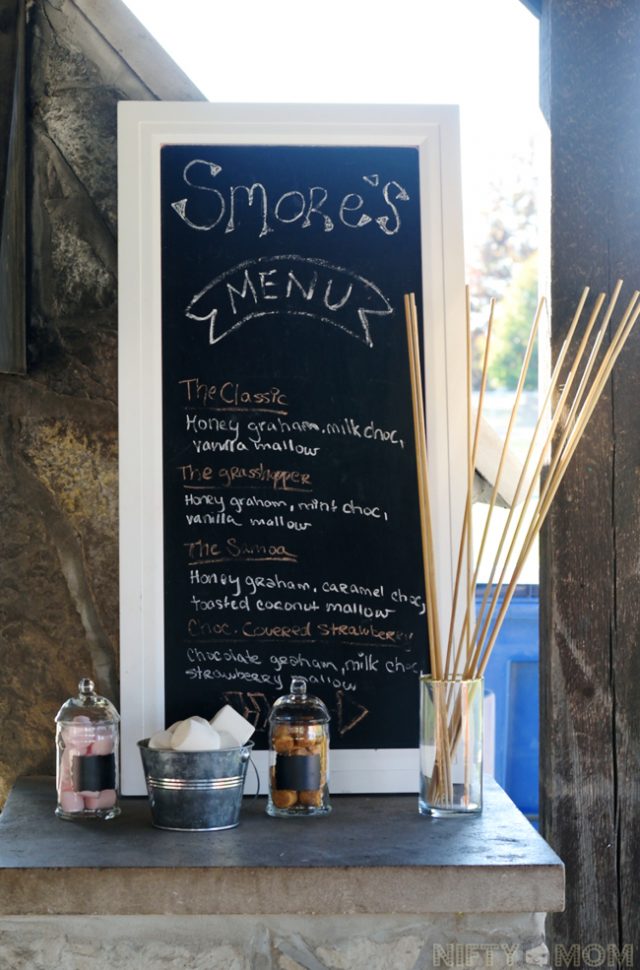 Smore's
MENU
The Classic
Honey graham, milk choc,
vanilla mallow
The grasshopper
Honey graham, mint choc,
vanilla mallow
The Samoa
Honey graham, caramel choc,
toasted coconut mallow
Choc. Covered Strawberry
Chocolate graham, milk choc,
strawberry mallow
NIFTY MOM